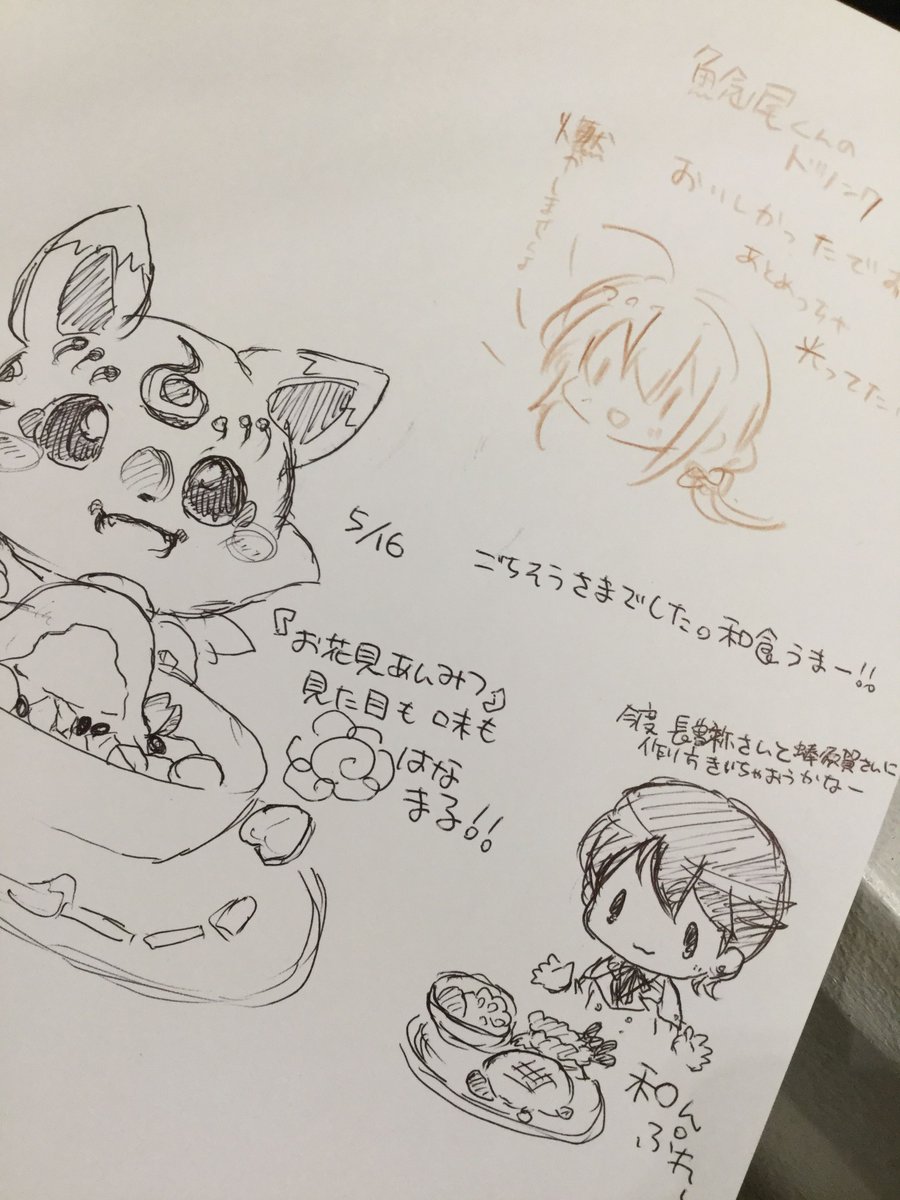 鯰尾くんの
ドリンク
おいしかったでお
あとめっちゃ
光ってた!
燃
5/16
ごちそうさまでした。和食うまー!!
『お花見あんみつ』
見た目も味も
はな
まる!!
今度長曽祢さんと蜂須賀さんに
作り方きいちゃおうかなー
和ん。
ぷれー